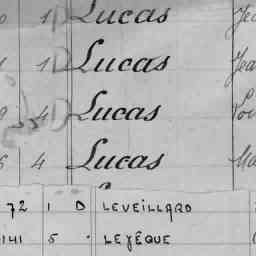 1 D Lucas
1 D Lucas
4 D Lucas
4 Lucas
72 1 D LEVEILLARD
141 5 - LEVÊQUE